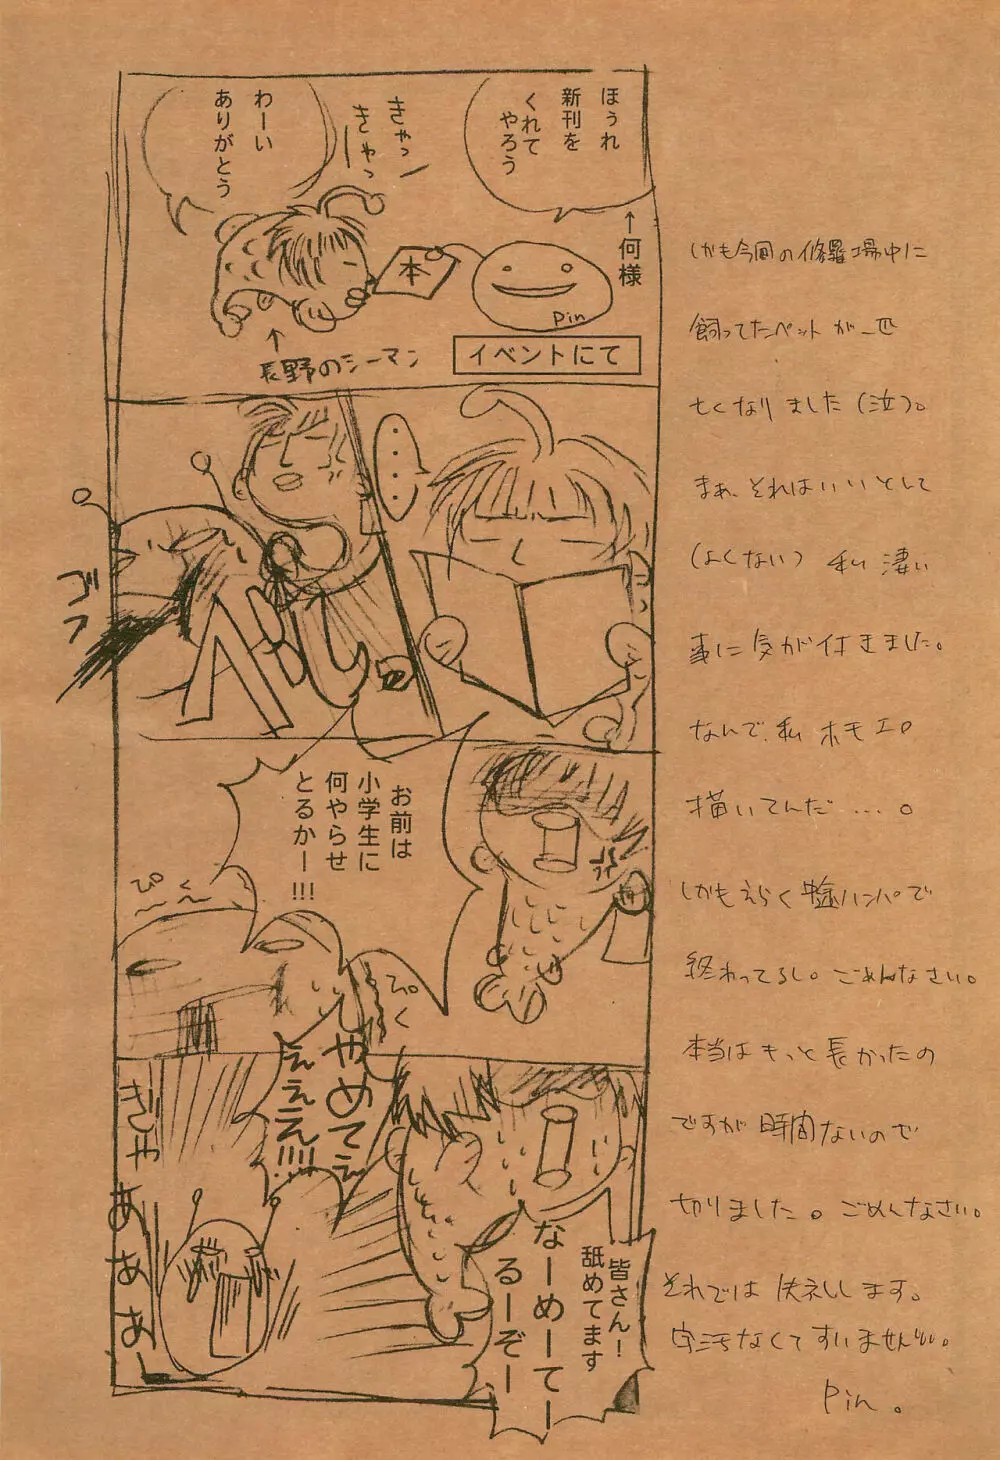 ほぅれ
新刊を
くれて
やろう
↑何様
きゃっ
きゃっ
わーい
ありがとう
本
pin
↑
長野のシーマン
イベントにて
・・・・
ゴフ
お前は
小学生に
何やらせ
とるかー!!!
ぴくー
ぴく
やめてぇ
ぇぇえ!!!!
皆さん!
舐めてます
なーめーてー
るーぞー
ぎゃ
あああー
しかも今回の修羅場中に
飼ってたペットが一匹
亡くなりました(泣)。
まぁ、それはいいとして
(よくない) 私 凄い
事に気が付きました。
なんで、私 ホモエロ
描いてんだ……。
しかもえらく中途ハンパで
終わってるし。ごめんなさい。
本当はもっと長かったの
ですが時間ないので
切りました。ごめんなさい。
それでは失礼します。
字汚なくてすいません。
Pin。